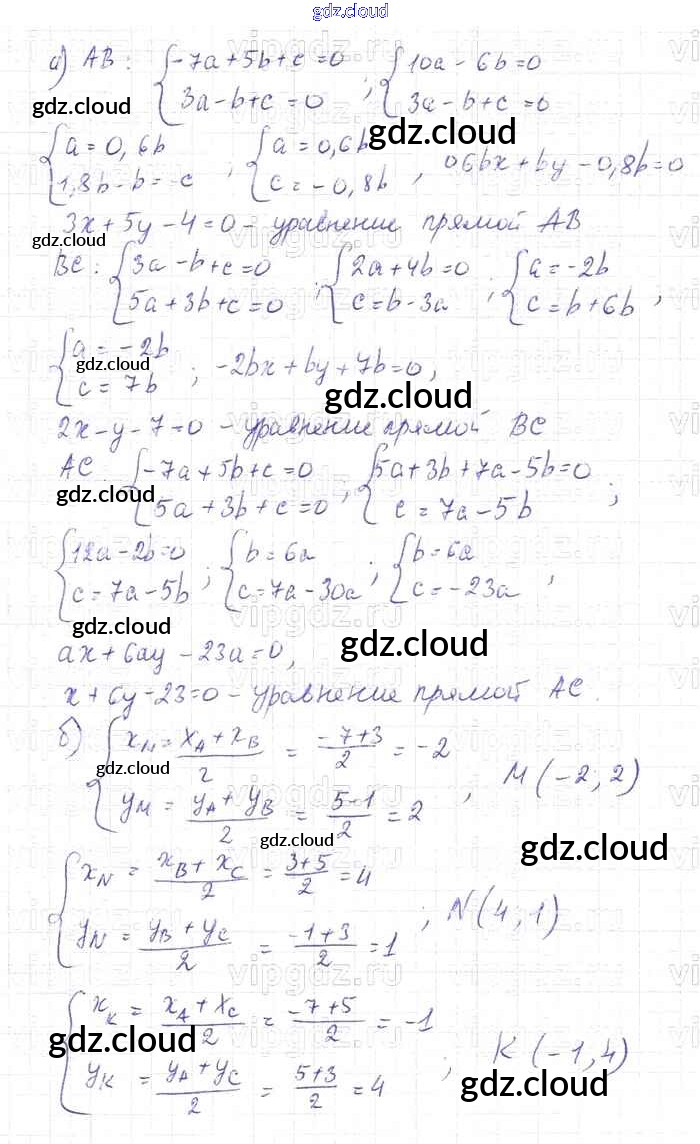 gdz.cloud
а) AB: {-7a+5b+c=0 ; {10a-6b=0
{3a-b+c=0 {3a-b+c=0
gdz.cloud gdz.cloud
{a=0,6b ; {a=0,6b , 0,6bx+by-0,8b=0
{1,8b-b=-c {c=-0,8b
3x+5y-4=0 - уравнение прямой AB
gdz.cloud
BC: {3a-b+c=0 ; {2a+4b=0 ; {a=-2b ,
{5a+3b+c=0 {c=b-3a {c=b+6b
{a=-2b ; -2bx+by+7b=0,
{c=7b
gdz.cloud gdz.cloud
2x-y-7=0 - уравнение прямой BC
AC {-7a+5b+c=0 , {5a+3b+7a-5b=0 ;
{5a+3b+c=0 {c=7a-5b
gdz.cloud
{12a-2b=0 ; {b=6a ; {b=6a ,
{c=7a-5b {c=7a-30a {c=-23a
gdz.cloud gdz.cloud
ax+6ay-23a=0,
x+6y-23=0 - уравнение прямой AC.
б) {x_M = (x_A+x_B)/2 = (-7+3)/2 = -2 , M(-2,2)
{y_M = (y_A+y_B)/2 = (5-1)/2 = 2
gdz.cloud gdz.cloud gdz.cloud
{x_N = (x_B+x_C)/2 = (3+5)/2 = 4 ; N(4,1)
{y_N = (y_B+y_C)/2 = (-1+3)/2 = 1
{x_K = (x_A+x_C)/2 = (-7+5)/2 = -1 ; K(-1,4)
{y_K = (y_A+y_C)/2 = (5+3)/2 = 4
gdz.cloud gdz.cloud